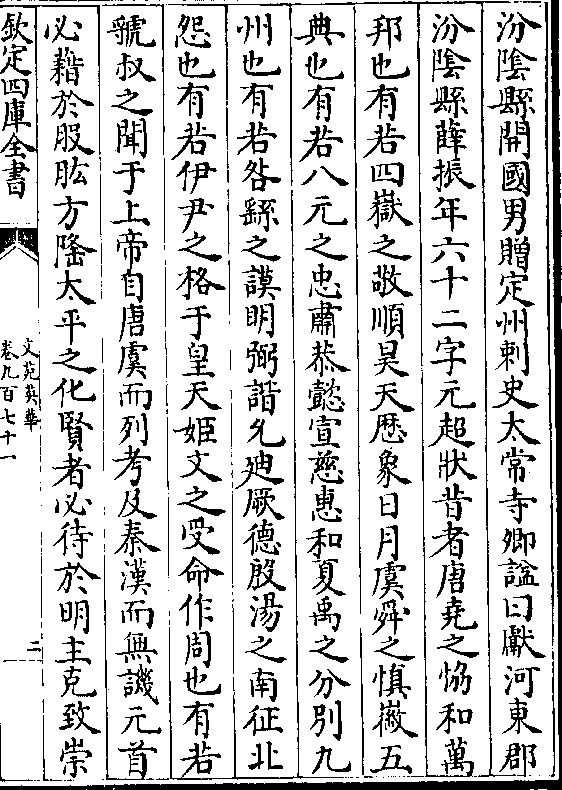 汾隂縣開國男贈定州刺史太常寺卿諡曰獻河東郡
汾隂縣薛振年六十二字元超狀昔者唐堯之恊和萬
邦也有若四嶽之敬順昊天厯象日月虞舜之慎徽五
典也有若八元之忠肅恭懿宣慈惠和夏禹之分别九
州也有若咎繇之謨明弼諧允廸厥德殷湯之南征北
怨也有若伊尹之格于皇天姬文之受命作周也有若
虢叔之聞于上帝自唐虞而列考及秦漢而無譏元首
必藉於股肱方隆太平之化賢者必待於明主克致崇
欽定四庫全書
文苑英華
卷九百七十一
二